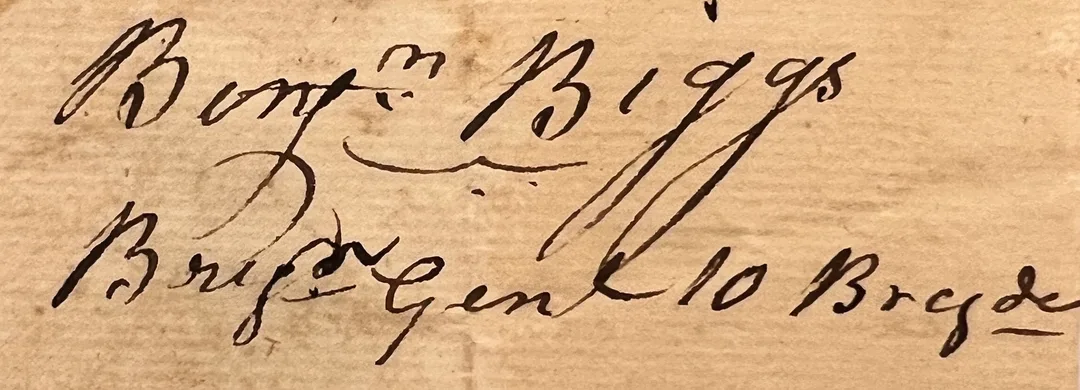 Benjn Biggs
Brigdr Genl 10 Brigde